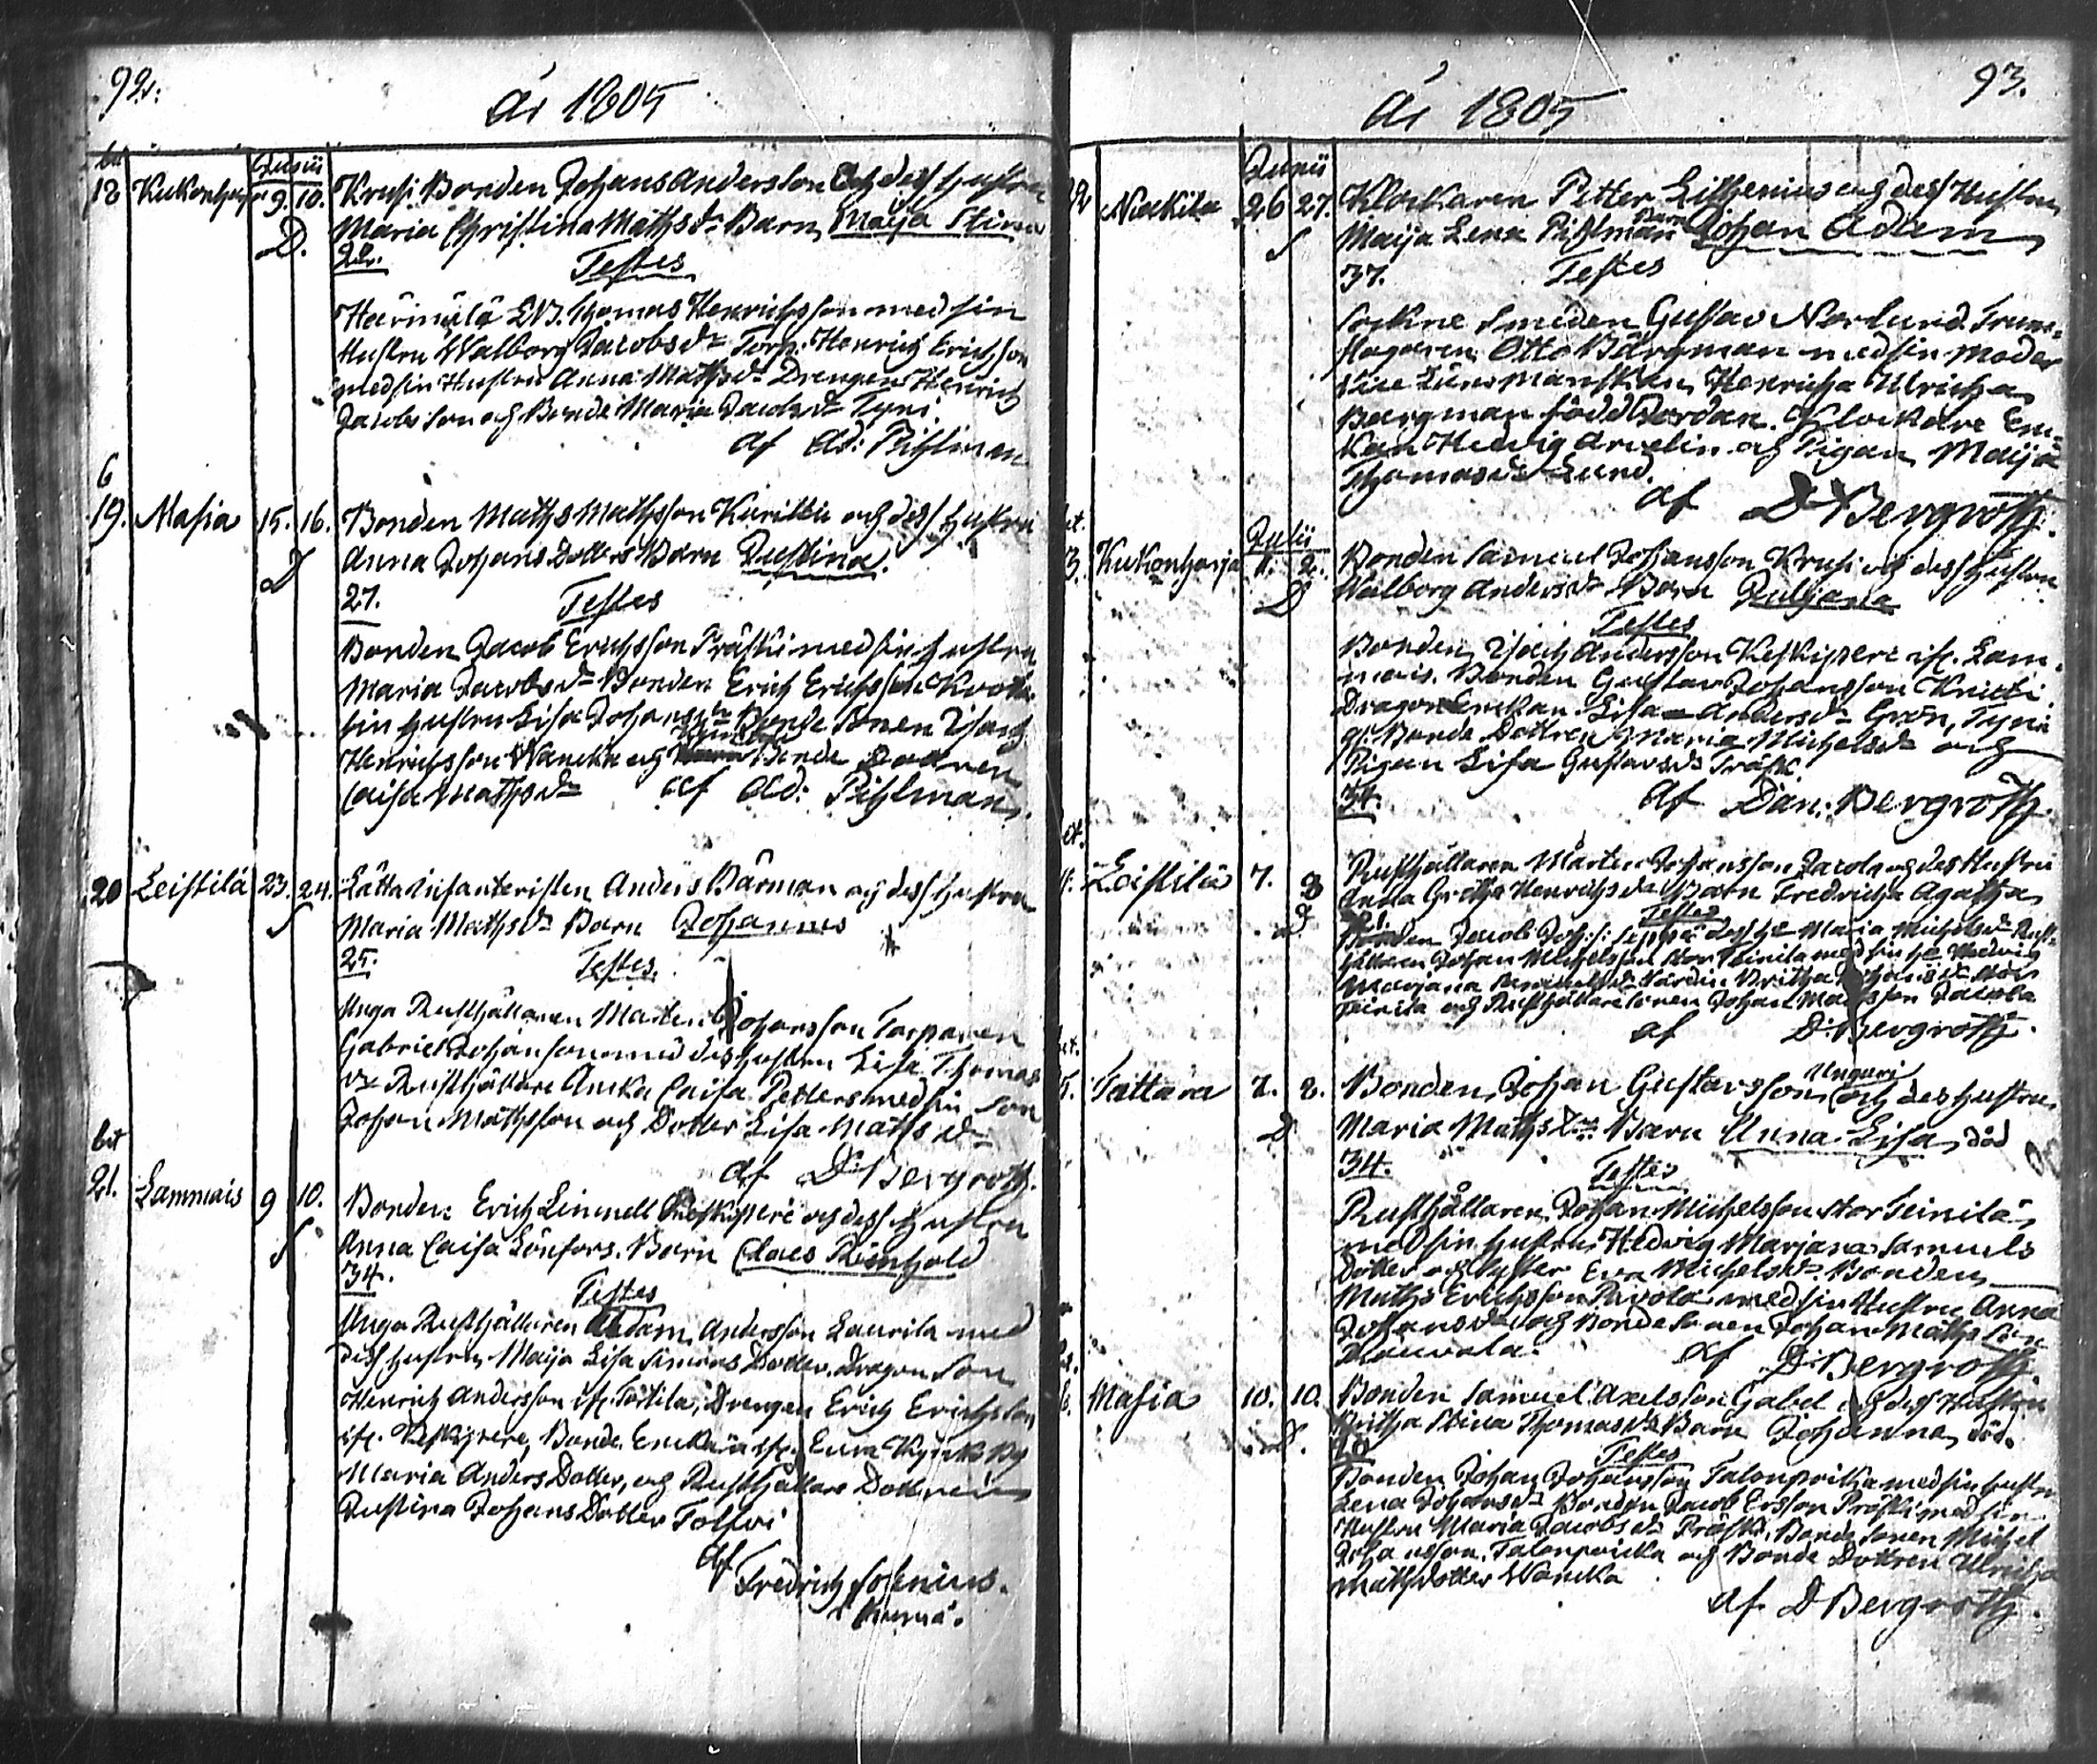 92.
År 1805
Junii
18 Kukonharja 9. 10. Krusi Bonden Johans Andersson Och dess hustru
D.
Maria Christina Mathsdr Barn Maija Stina
22.
Testes
Härmälä Thomas Henrichsson med sin
Hustru Walborg Jacobsdr Torp. Henrich Erichsson
med sin Hustru Anna Mathsdr Drengen Henrich
Jacobsson och Bonde Maria Jacobsdr Tyni.
af Ad: Pihlman
6
19. Masia 15. 16. Bonden Maths Mathsson Kurittu och dess hustru
D
Anna Johans Dotters Barn Justina.
27.
Testes
Bonden Jacob Erichsson Präski med sin hustru
Maria Jacobsdr Bonden Erich Erichsson
sin hustru Lisa Johansdr Bonde Sonen Isach
Henrichsson Wancka och Bonde Dottren
Caisa Mathsdr af Ad: Pihlman.
20 Leistilä 23. 24. Lätta Infanteristen Anders Bärman och dess hustru
S
Maria Mathsdr Barn Johannes
25.
Testes.
Unga Rusthållaren Mårten Johansson Torparen
Gabriel Johansson med dess hustru Lisa Thomas
dr Rusthållare Ancka Caisa Petters med sin Son
Johan Mathsson och Dotter Lisa Mathsdr
af D: Bergroth.
21. Lammais 9 10. Bonden Erich Linnell Keskipere och dess hustru
S
Anna Caisa Lönfors. Barn Claes Reinhold
34.
Testes
Unga Rusthållaren Adam Andersson Laurila med
dess hustru Maija Lisa Simons Dotter. Dragon Son
Henrich Andersson ifr. Tottila, Drengen Erich Erichsson
ifr. Keskipere, Bonde Enckan ifr. Eura Kyrko By
Maria Anders Dotter, och Rusthållare Dottren
Justina Johans Dotter Tolsvi
af
Fredrich

93.
År 1805
Junii
Nackila 26 27. Klockaren Petter Lithenius och dess Hustru
S
Maija Lena Pihlman Barn Johan Adam
37.
Testes
Sockne Smeden Gustav Norlund. Trum-
slagaren Otto Bärgman med sin Moder
vice Länsmanskan Henricha Ulricha
Bergman född Jordan. Klockare En-
kan Hedvig Arvelin och Pigan Maija
Thomasdr Lund.
af D Bergroth.
Julii
Kukonharja 1. 2. Bonden Samuel Johansson Krusi och dess hustru
D
Walborg Andersdr Barn Juljana
Testes
Bonden Isach Andersson Keskipere ifr. Lam-
mais. Bonden Gustav Johansson Knutti
Dragon Enckan Lisa Andersdr Grön, Tyni
Bonde Dottren Maria Michelsdr och
Pigan Lisa Gustavsdr Träsk.
34. af Dan: Bergroth.
Leistilä 7. 8 Rusthållaren Mårten Johansson Jacola och dess Hustru
D
Anna Gretha Henrichsdr Barn Fredricha Agatha
Testes
Bonden Jacob Joh:s: Seppä dess h. Maria Michelsdr Rust-
hållaren Johan Michelsson Stor Teinilä med sin h. Hedwig
Marjana Samuelsdr Britha Johansdr Stor
Teinilä och Rusthållare Sonen Johan Mathsson Jacola
af D: Bergroth.
Tattara 7. 8. Bonden Johan Gustavsson Unguri och dess hustru
D
Maria Mathsdr Barn Anna Lisa, död
34.
Testes
Rusthållaren Johan Michelsson Stor Teinilä
med sin hustru Hedwig Marjana Samuels
Dotter och Syster Eva Michelsdr Bonden
Maths Erichsson Pavola med sin Hustru Anna
Johansdr och Bonde Sonen Johan Maths Son
Rauvola. af D. Bergroth.
Masia 10. 10. Bonden Samuel Axelsson Gabel och dess Hustru
D.
Britha Stina Thomasdr Barn Johanna, död.
Testes
Bonden Johan Johansson Talonpoika med sin hustru
Lena Johansdr Bonden Jacob Ersson Präski med sin
Hustru Maria Jacobsdr Präski, Bonde Sonen Michel
Johansson Talonpoicka och Bonde Dottren Ulricha
Mathsdotter Wancka
af D Bergroth.